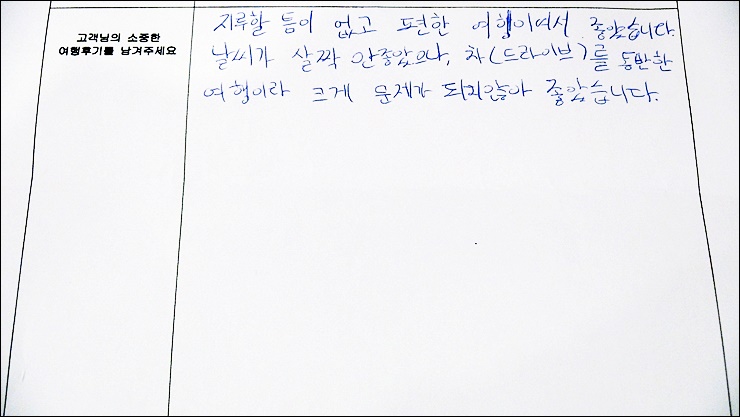 고객님의 소중한
여행후기를 남겨주세요
지루할 틈이 없고 편한 여행이여서 좋았습니다.
날씨가 살짝 안좋았으나, 차(드라이브)를 동반한
여행이라 크게 문제가 되지않아 좋았습니다.